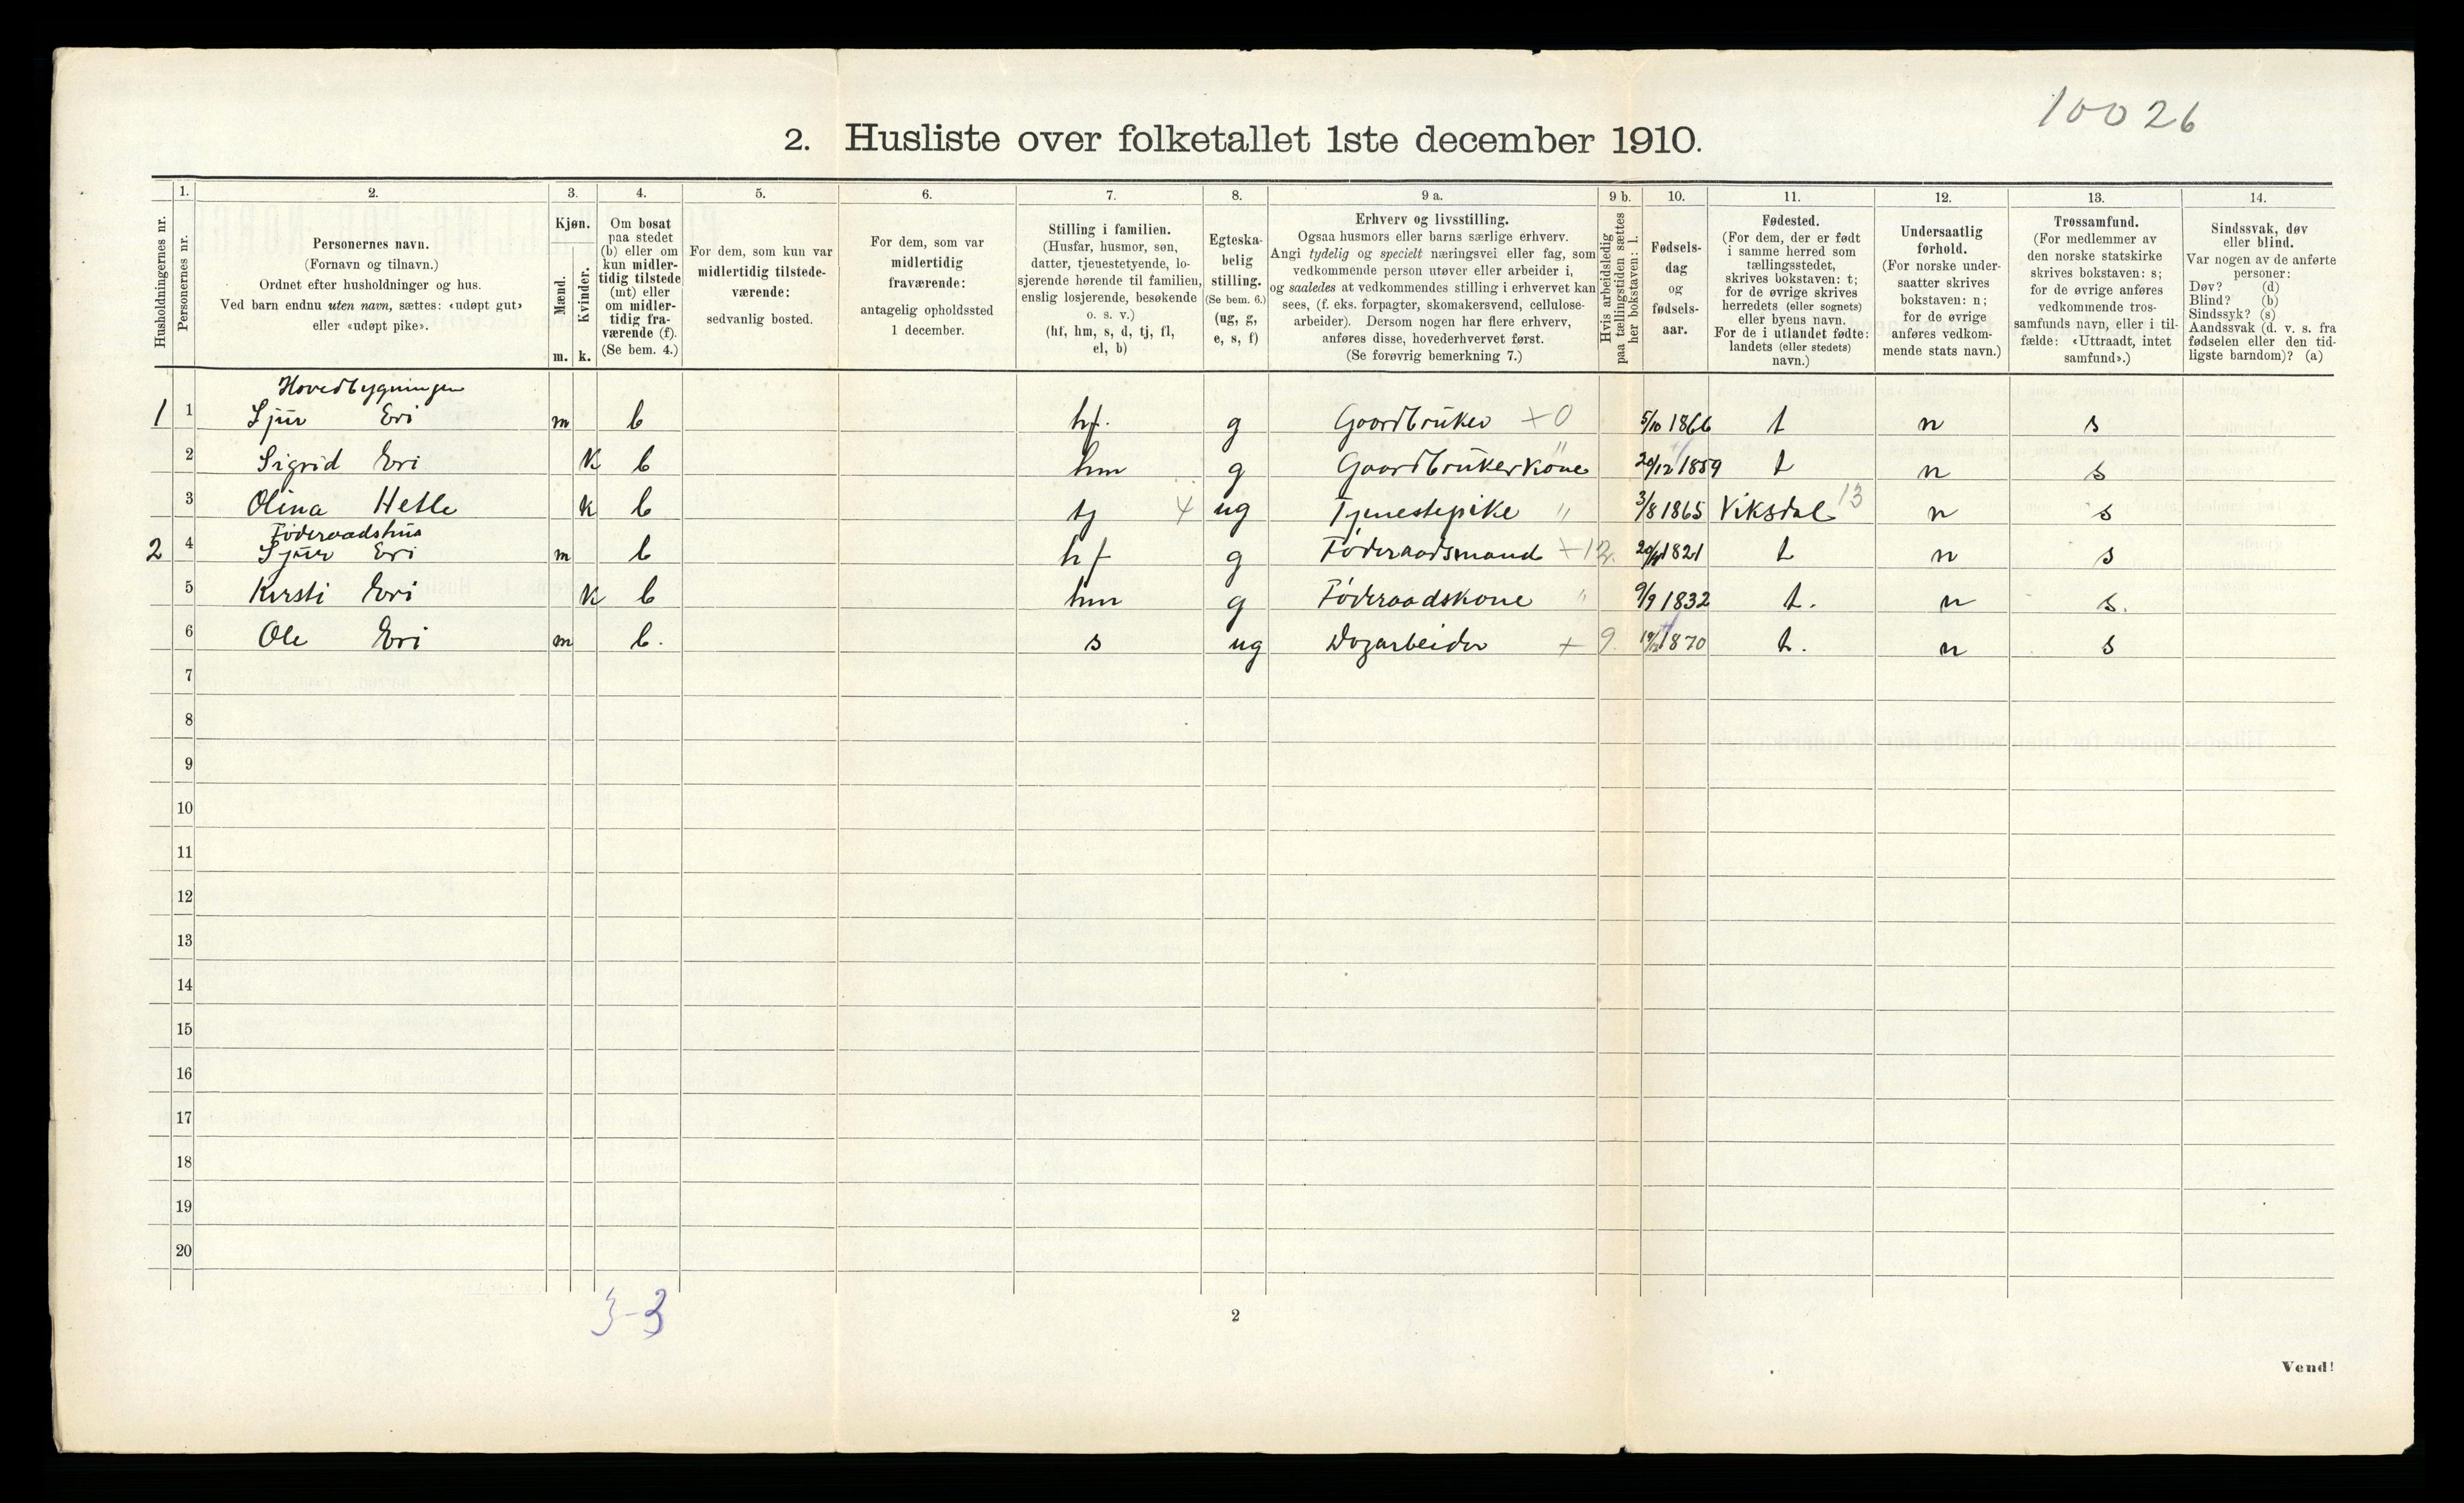 10026
2. Husliste over folketallet 1ste december 1910.
Husholdningernes nr.
1.
Personernes nr.
2.
Personernes navn.
(Fornavn og tilnavn.)
Ordnet efter husholdninger og hus.
Ved barn endnu uten navn, sættes: «udøpt gut»
eller «udøpt pike».
3.
Kjøn.
Mænd.
Kvinder.
m. k.
4.
Om bosat
paa stedet
(b) eller om
kun midler-
tidig tilstede
(mt) eller
om midler-
tidig fra-
værende (f).
(Se bem. 4.)
5.
For dem, som kun var
midlertidig tilstede-
værende:
sedvanlig bosted.
6.
For dem, som var
midlertidig
fraværende:
antagelig opholdssted
1 december.
7.
Stilling i familien.
(Husfar, husmor, søn,
datter, tjenestetyende, lo-
sjerende hørende til familien,
enslig losjerende, besøkende
o. s. v.)
(hf, hm, s, d, tj, fl,
el, b)
8.
Egteska-
belig
stilling.
(Se bem. 6.)
(ug, g,
e, s, f)
9 a.
Erhverv og livsstilling.
Ogsaa husmors eller barns særlige erhverv.
Angi tydelig og specielt næringsvei eller fag, som
vedkommende person utøver eller arbeider i,
og saaledes at vedkommendes stilling i erhvervet kan
sees, (f. eks. forpagter, skomakersvend, cellulose-
arbeider). Dersom nogen har flere erhverv,
anføres disse, hovederhvervet først.
(Se forøvrig bemerkning 7.)
9 b.
Hvis arbeidsledig
paa tællingstiden sættes
her bokstaven: l.
10.
Fødsels-
dag
og
fødsels-
aar.
11.
Fødested.
(For dem, der er født
i samme herred som
tællingsstedet,
skrives bokstaven: t;
for de øvrige skrives
herredets (eller sognets)
eller byens navn.
For de i utlandet fødte:
landets (eller stedets)
navn.)
12.
Undersaatlig
forhold.
(For norske under-
saatter skrives
bokstaven: n;
for de øvrige
anføres vedkom-
mende stats navn.)
13.
Trossamfund.
(For medlemmer av
den norske statskirke
skrives bokstaven: s;
for de øvrige anføres
vedkommende tros-
samfunds navn, eller i til-
fælde: «Uttraadt, intet
samfund».)
14.
Sindssvak, døv
eller blind.
Var nogen av de anførte
personer:
Døv? (d)
Blind? (b)
Sindssyk? (s)
Aandssvak (d. v. s. fra
fødselen eller den tid-
ligste barndom)? (a)
Hovedbygningen
1 1 Sjur Eri m b hf. g Gaardbruker + 0 5/10 1866 t n s
2 Sigrid Eri k b hm g Gaardbrukerkone " 20/12 1859 t n s
3 Olina Hetle k b tj 4 ug Tjenestepike " 3/8 1865 Viksdal 13 n s
Föderaadshus
2 4 Sjur Eri m b hf g Föderaadsmand + 12. 1821 t n s
5 Kirsti Eri k b hm g Föderaadskone " 9/9 1832 t. n s.
6 Ole Eri m b. s ug Dagarbeider + 9. 1870 t. n s
7
8
9
10
11
12
13
14
15
16
17
18
19
20
3-3
2
Vend!